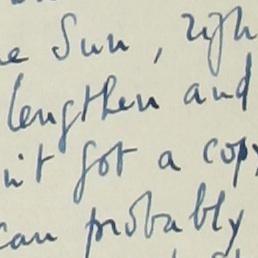 e Sun, righ
lengthen and
n't got a cop
can probably